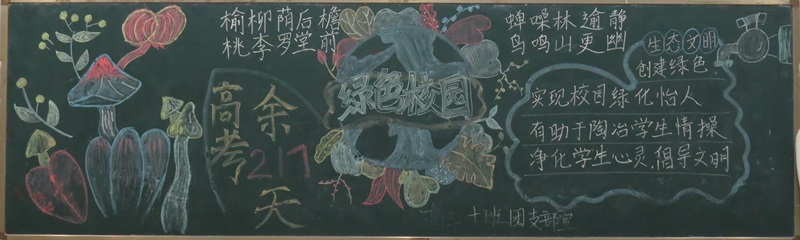 榆柳荫后檐
桃李罗堂前
蝉噪林逾静
鸟鸣山更幽
高考余217天
绿色校园
生态文明
创建绿色
实现校园绿化怡人
有助于陶冶学生情操
净化学生心灵,倡导文明
十班团支部宣